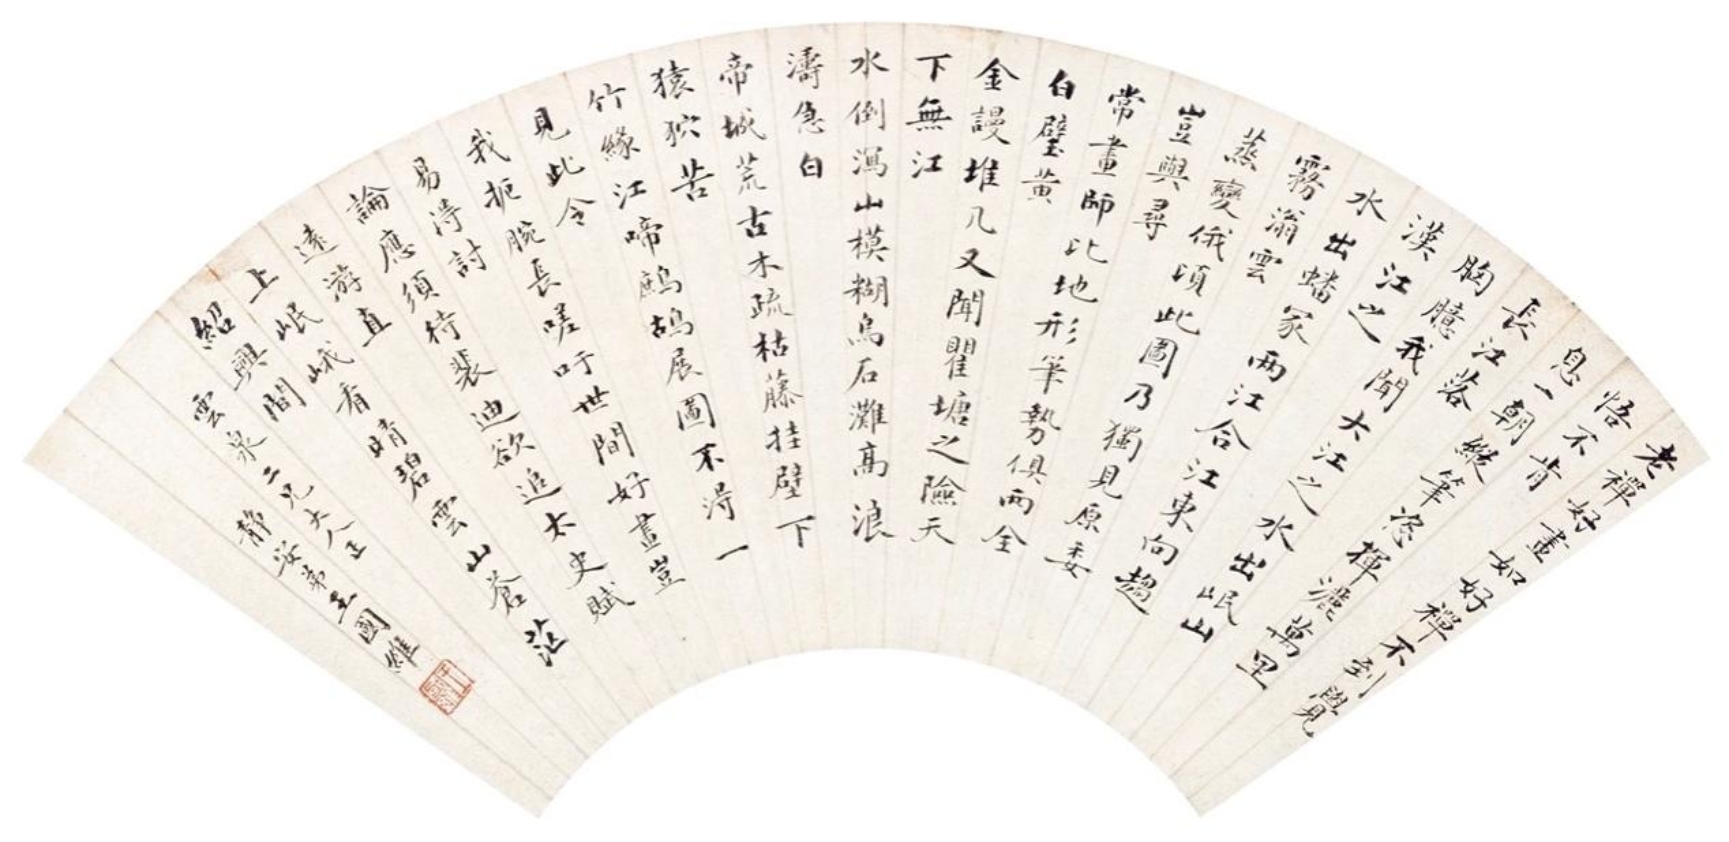 老禪好畫如好禪不到覺
悟不肯
息一朝縱筆恣揮灑萬里
長江落
胸臆我聞大江之水出岷山
漢江之
水出嶓冢兩江合江東向趨
霧滃雲
蒸變俄頃此圖乃獨見原委
豈與尋
常畫師比地形筆勢俱兩全
白璧黃
金謾堆几又聞瞿塘之險天
下無江
水倒瀉山模糊烏石灘高浪
濤急白
帝城荒古木疏枯藤挂壁下
猿狖苦
竹緣江啼鷓鴣展圖不得一
見此令
我扼腕長嗟吁世間好畫豈
易得討
論應須待裴迪欲追太史賦
遠游直
上岷峨看晴碧雲山蒼茫
紹興間
雲泉二兄大人正
靜安弟王國維